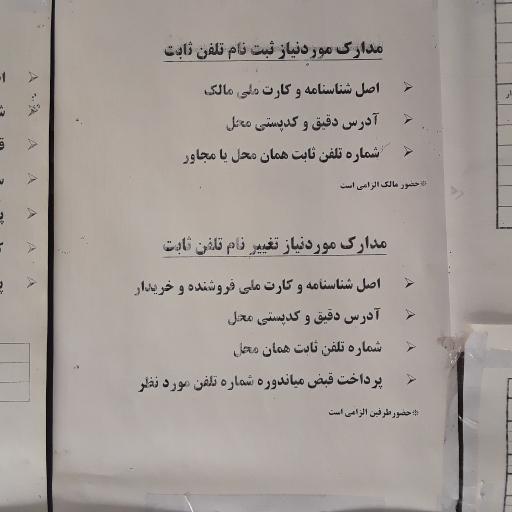 مدارک موردنیاز ثبت نام تلفن ثابت
اصل شناسنامه و کارت ملی مالک
آدرس دقیق و کدپستی محل
شماره تلفن ثابت همان محل یا مجاور
*حضور مالک الزامی است
مدارک موردنیاز تغییر نام تلفن ثابت
اصل شناسنامه و کارت ملی فروشنده و خریدار
آدرس دقیق و کدپستی محل
شماره تلفن ثابت همان محل
پرداخت قبض میاندوره شماره تلفن مورد نظر
*حضورطرفین الزامی است